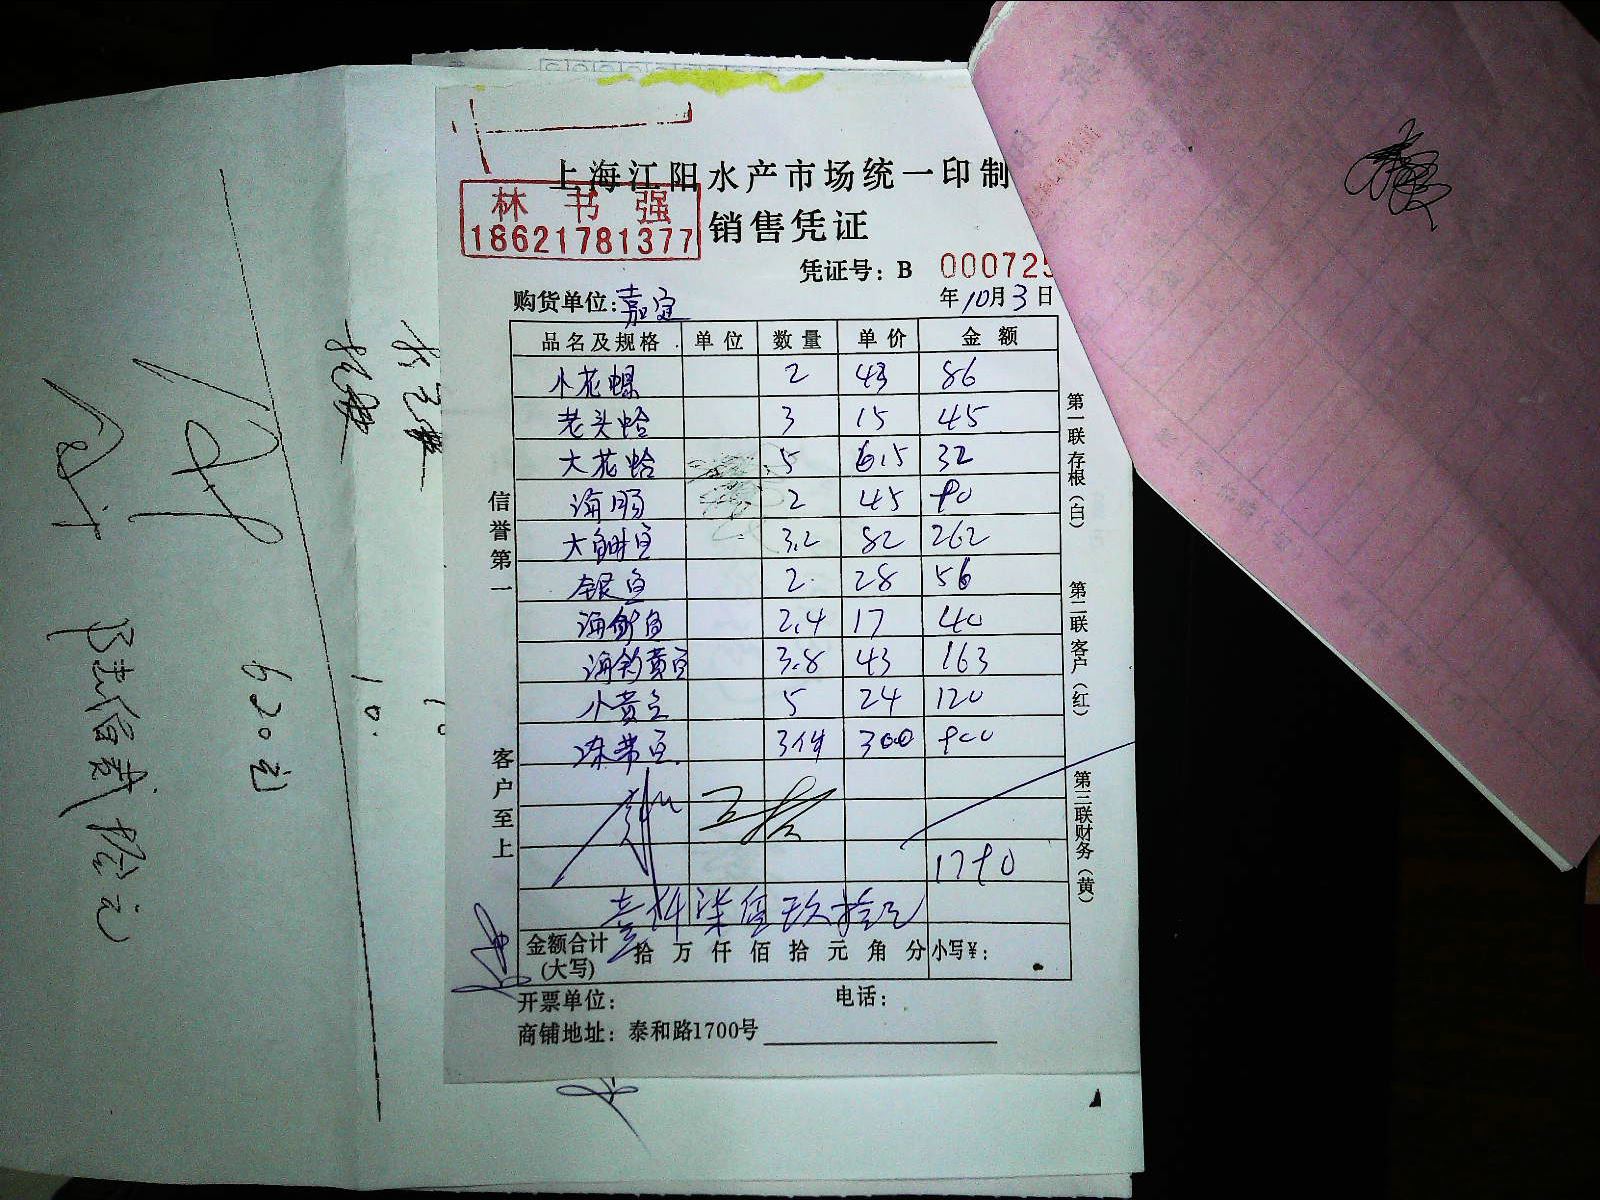 上海江阳水产市场统一印制
林书强
18621781377
销售凭证
凭证号：B 000725
购货单位：嘉定
年10月3日
品名及规格 单位 数量 单价 金额
小花螺 2 43 86
老头蛤 3 15 45
大花蛤 5 6.5 32
海肠 2 45 90
大鲥鱼 3.2 82 262
银鱼 2 28 56
2.4 17 40
3.8 43 163
小黄鱼 5 24 120
冻带鱼 3件 300 900
1790
壹仟柒佰玖拾元
金额合计
(大写)
拾万仟佰拾元角分 小写¥：
开票单位：
电话：
商铺地址：泰和路1700号
信誉第一
客户至上
第一联存根（白）
第二联客户（红）
第三联财务（黄）
620元
陆佰贰拾元
10.
10